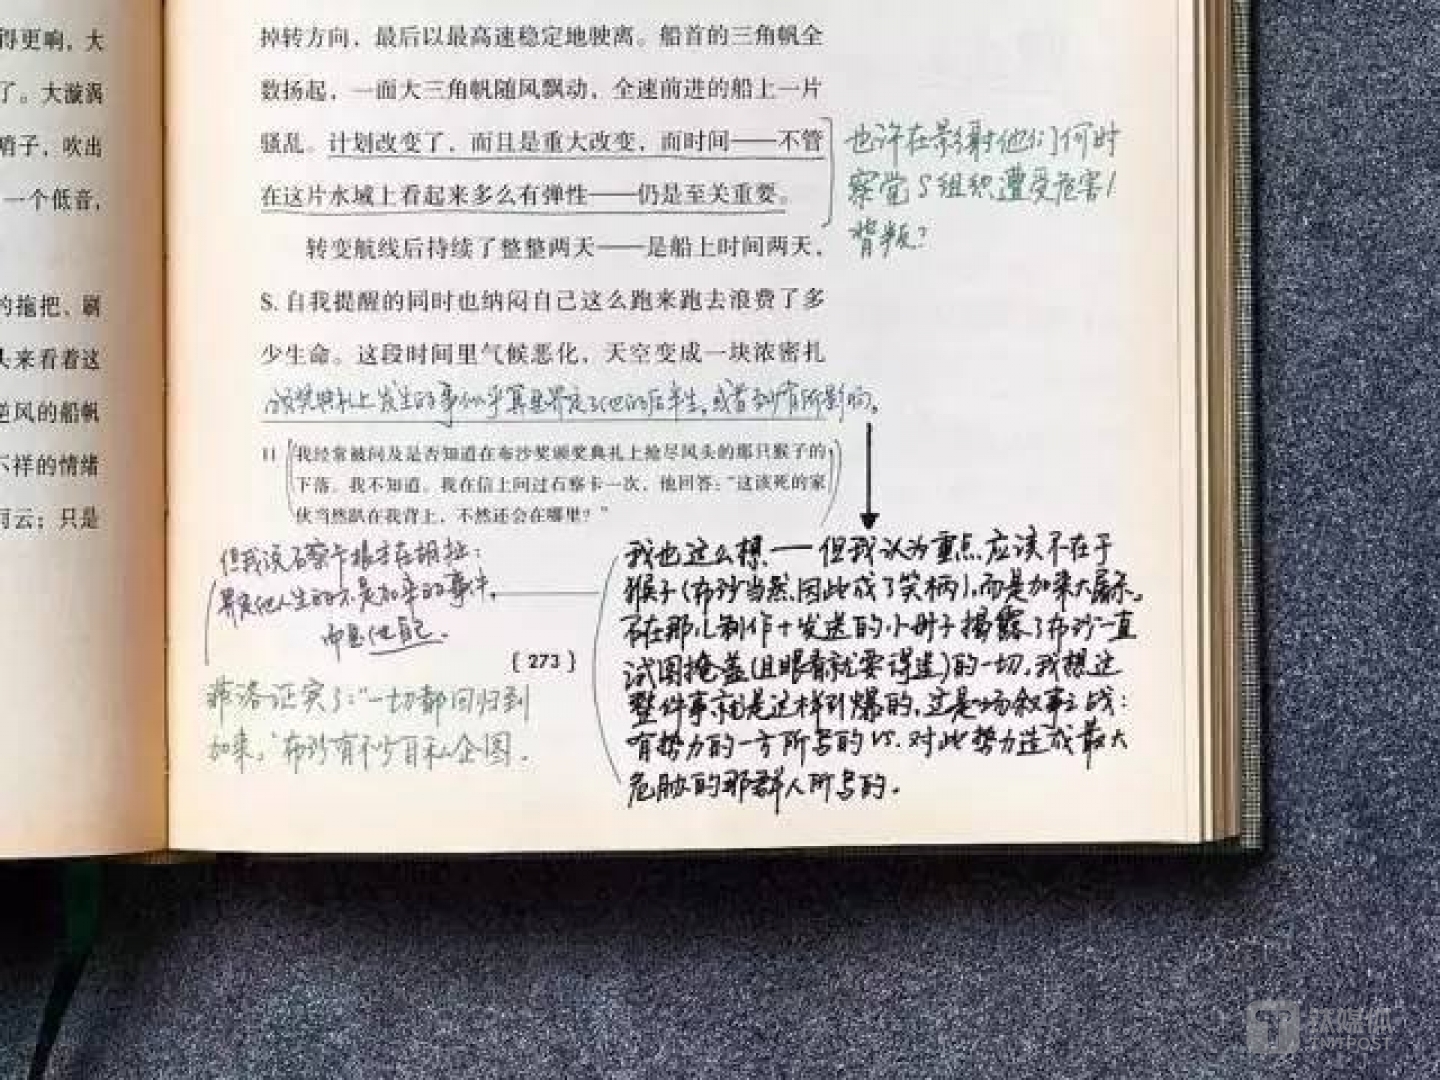 得更响，大
了。大漩涡
哨子，吹出
一个低音，
的拖把、刷
头来看着这
逆风的船帆
不祥的情绪
阿云；只是
掉转方向，最后以最高速稳定地驶离。船首的三角帆全
数扬起，一面大三角帆随风飘动，全速前进的船上一片
骚乱。计划改变了，而且是重大改变，而时间——不管
在这片水域上看起来多么有弹性——仍是至关重要。
转变航线后持续了整整两天——是船上时间两天，
S. 自我提醒的同时也纳闷自己这么跑来跑去浪费了多
少生命。这段时间里气候恶化，天空变成一块浓密扎
也许在影射他们何时
察觉 S 组织遭受危害/
背叛？
颁奖典礼上发生的事似乎真是界定了他的后半生，或者到有所影响。
11 我经常被问及是否知道在布沙奖颁奖典礼上抢尽风头的那只猴子的
下落。我不知道。我在信上问过石察卡一次，他回答：“这该死的家
伙当然趴在我背上，不然还会在哪里？”
但我说石察卡根本在胡扯：
界定他人生的不是加来的事件，
而是他自己.
{ 273 }
菲洛证实了：“一切都回归到
加来，”布沙有不少自私企图.
我也这么想——但我认为重点应该不在于
猴子(布沙当然因此成了笑柄)，而是加来大屠杀。
石在那儿制作+发送的小册子揭露了布沙一直
试图掩盖(且眼看就要得逞)的一切，我想这
整件事就是这样引爆的，这是场叙事之战：
有势力的一方所写的 VS. 对此势力造成最大
危胁的那群人所写的.
钛媒体
TMTPOST